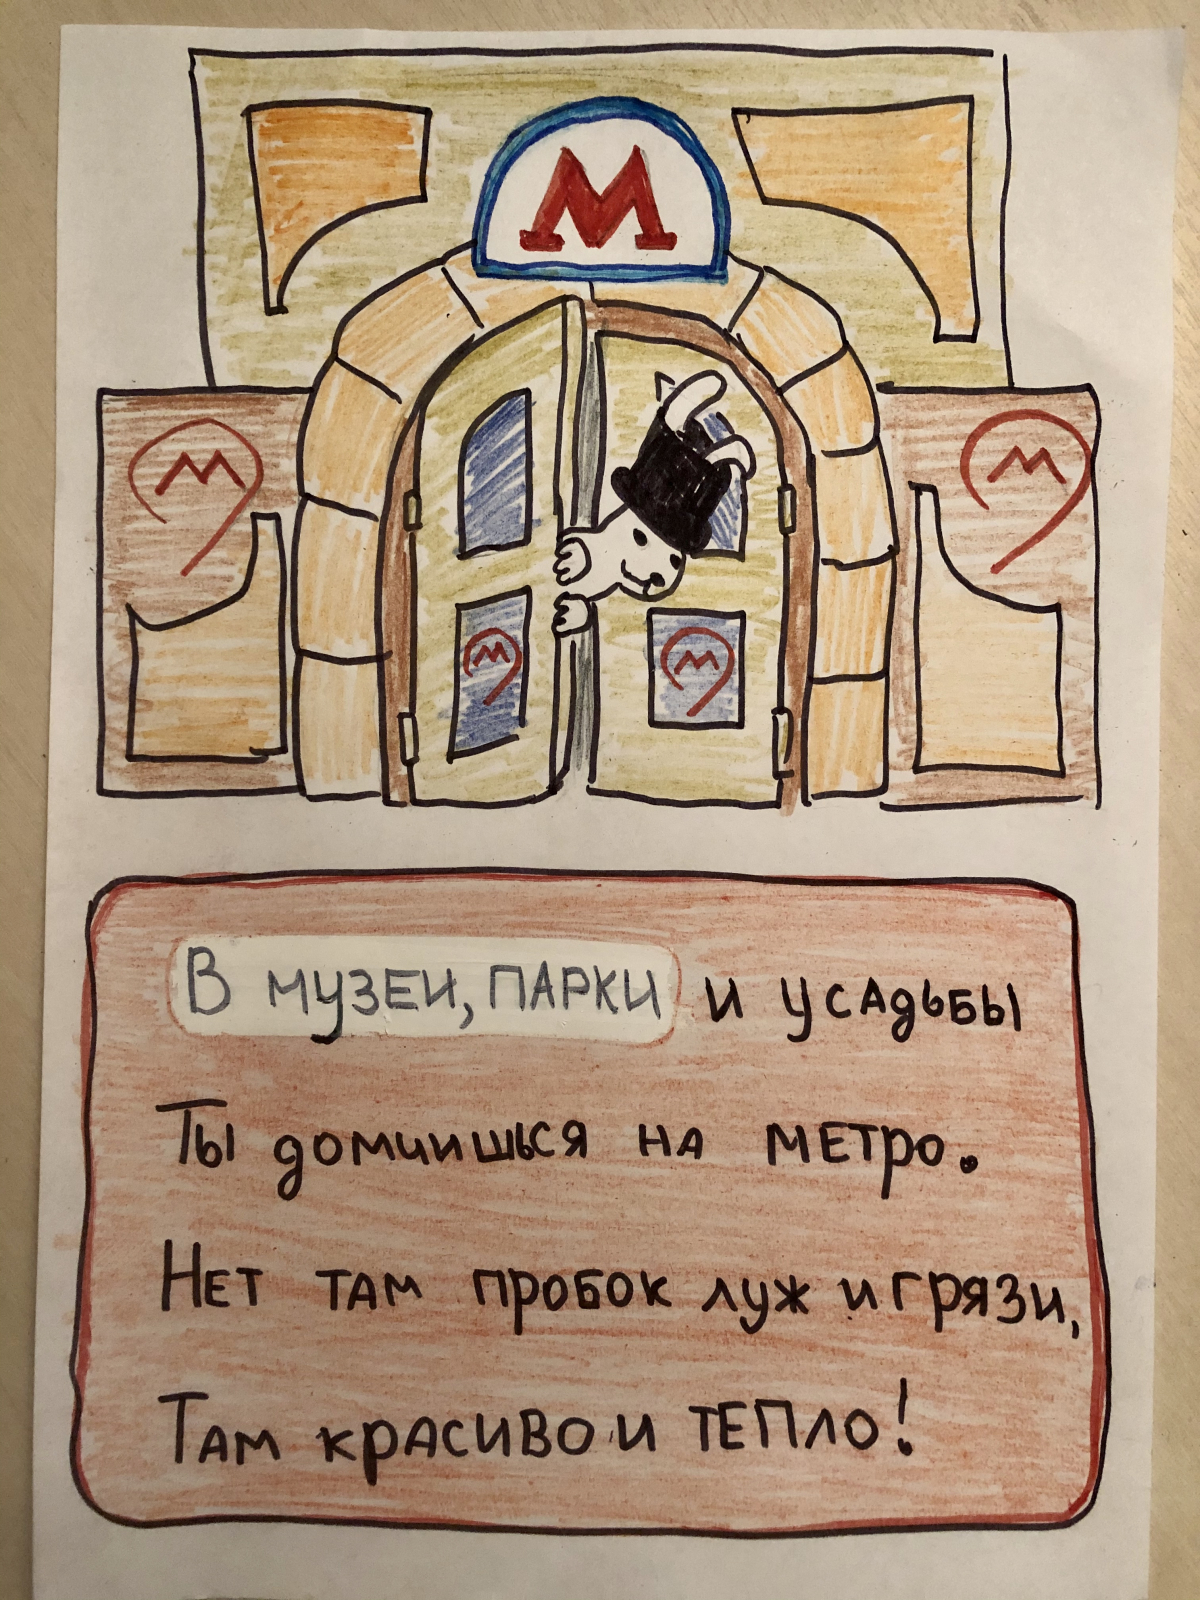 М
М
М
М
М
В музеи, парки и усадьбы
Ты домчишься на метро.
Нет там пробок луж и грязи,
Там красиво и тепло!